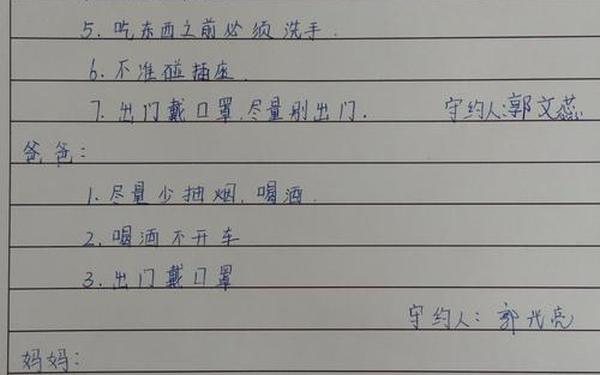 5. 吃东西之前必须洗手.
6. 不准碰插座.
7. 出门戴口罩,尽量别出门. 守约人:郭文蕊
爸爸:
1. 尽量少抽烟,喝酒.
2. 喝酒不开车
3. 出门戴口罩
守约人: 郭光亮
妈妈: